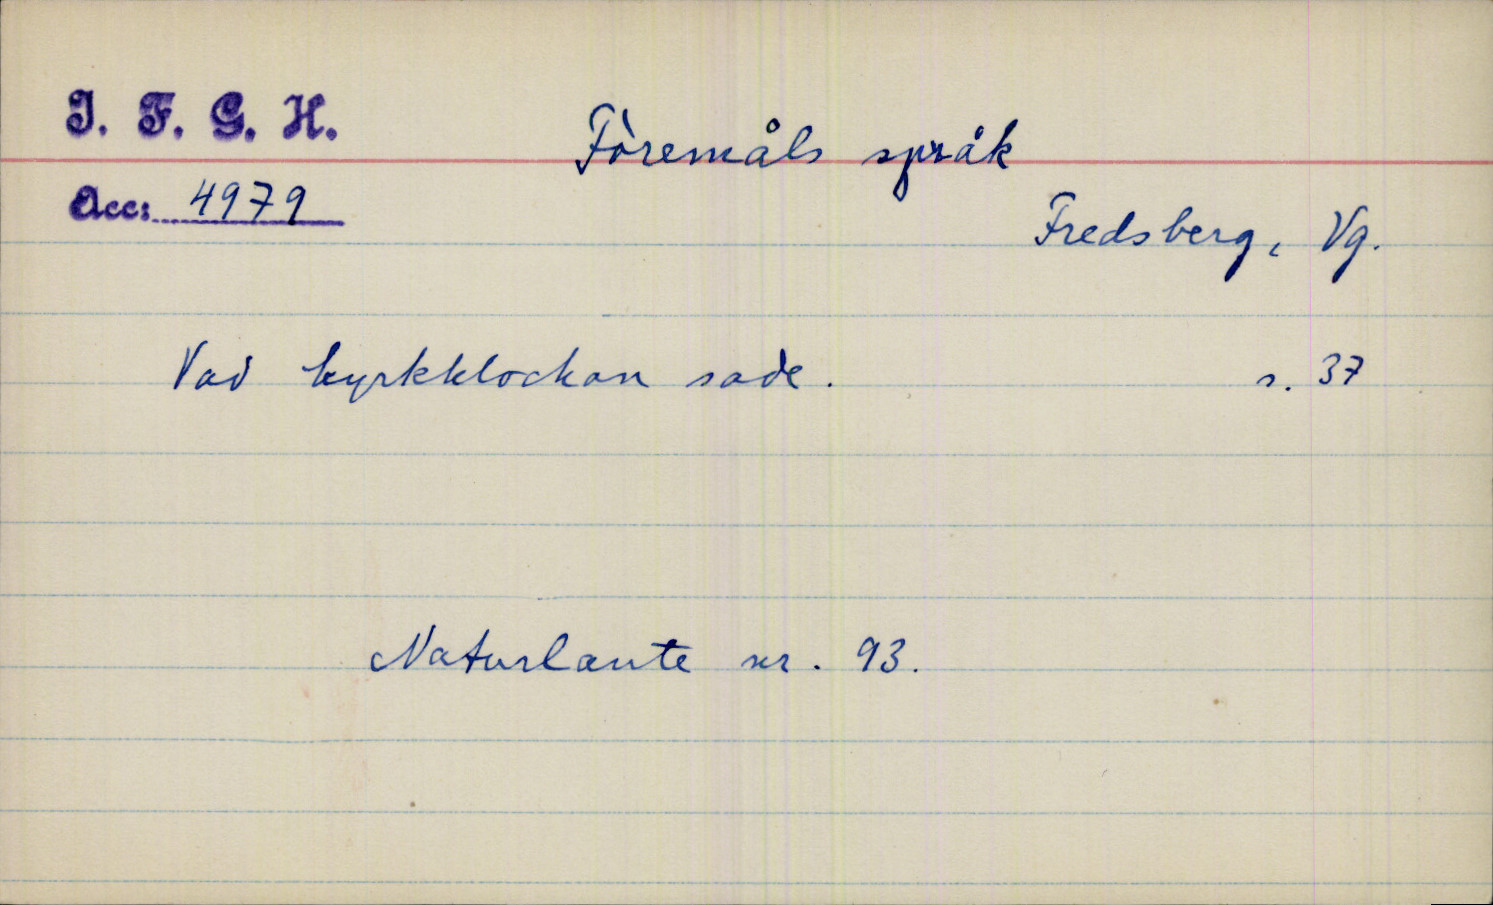 I. F. G. H.
Föremåls språk
Acc: 4979
Fredsberg, Vg.
Vad kyrkklockan sade. s. 37
Naturlaute nr. 93.